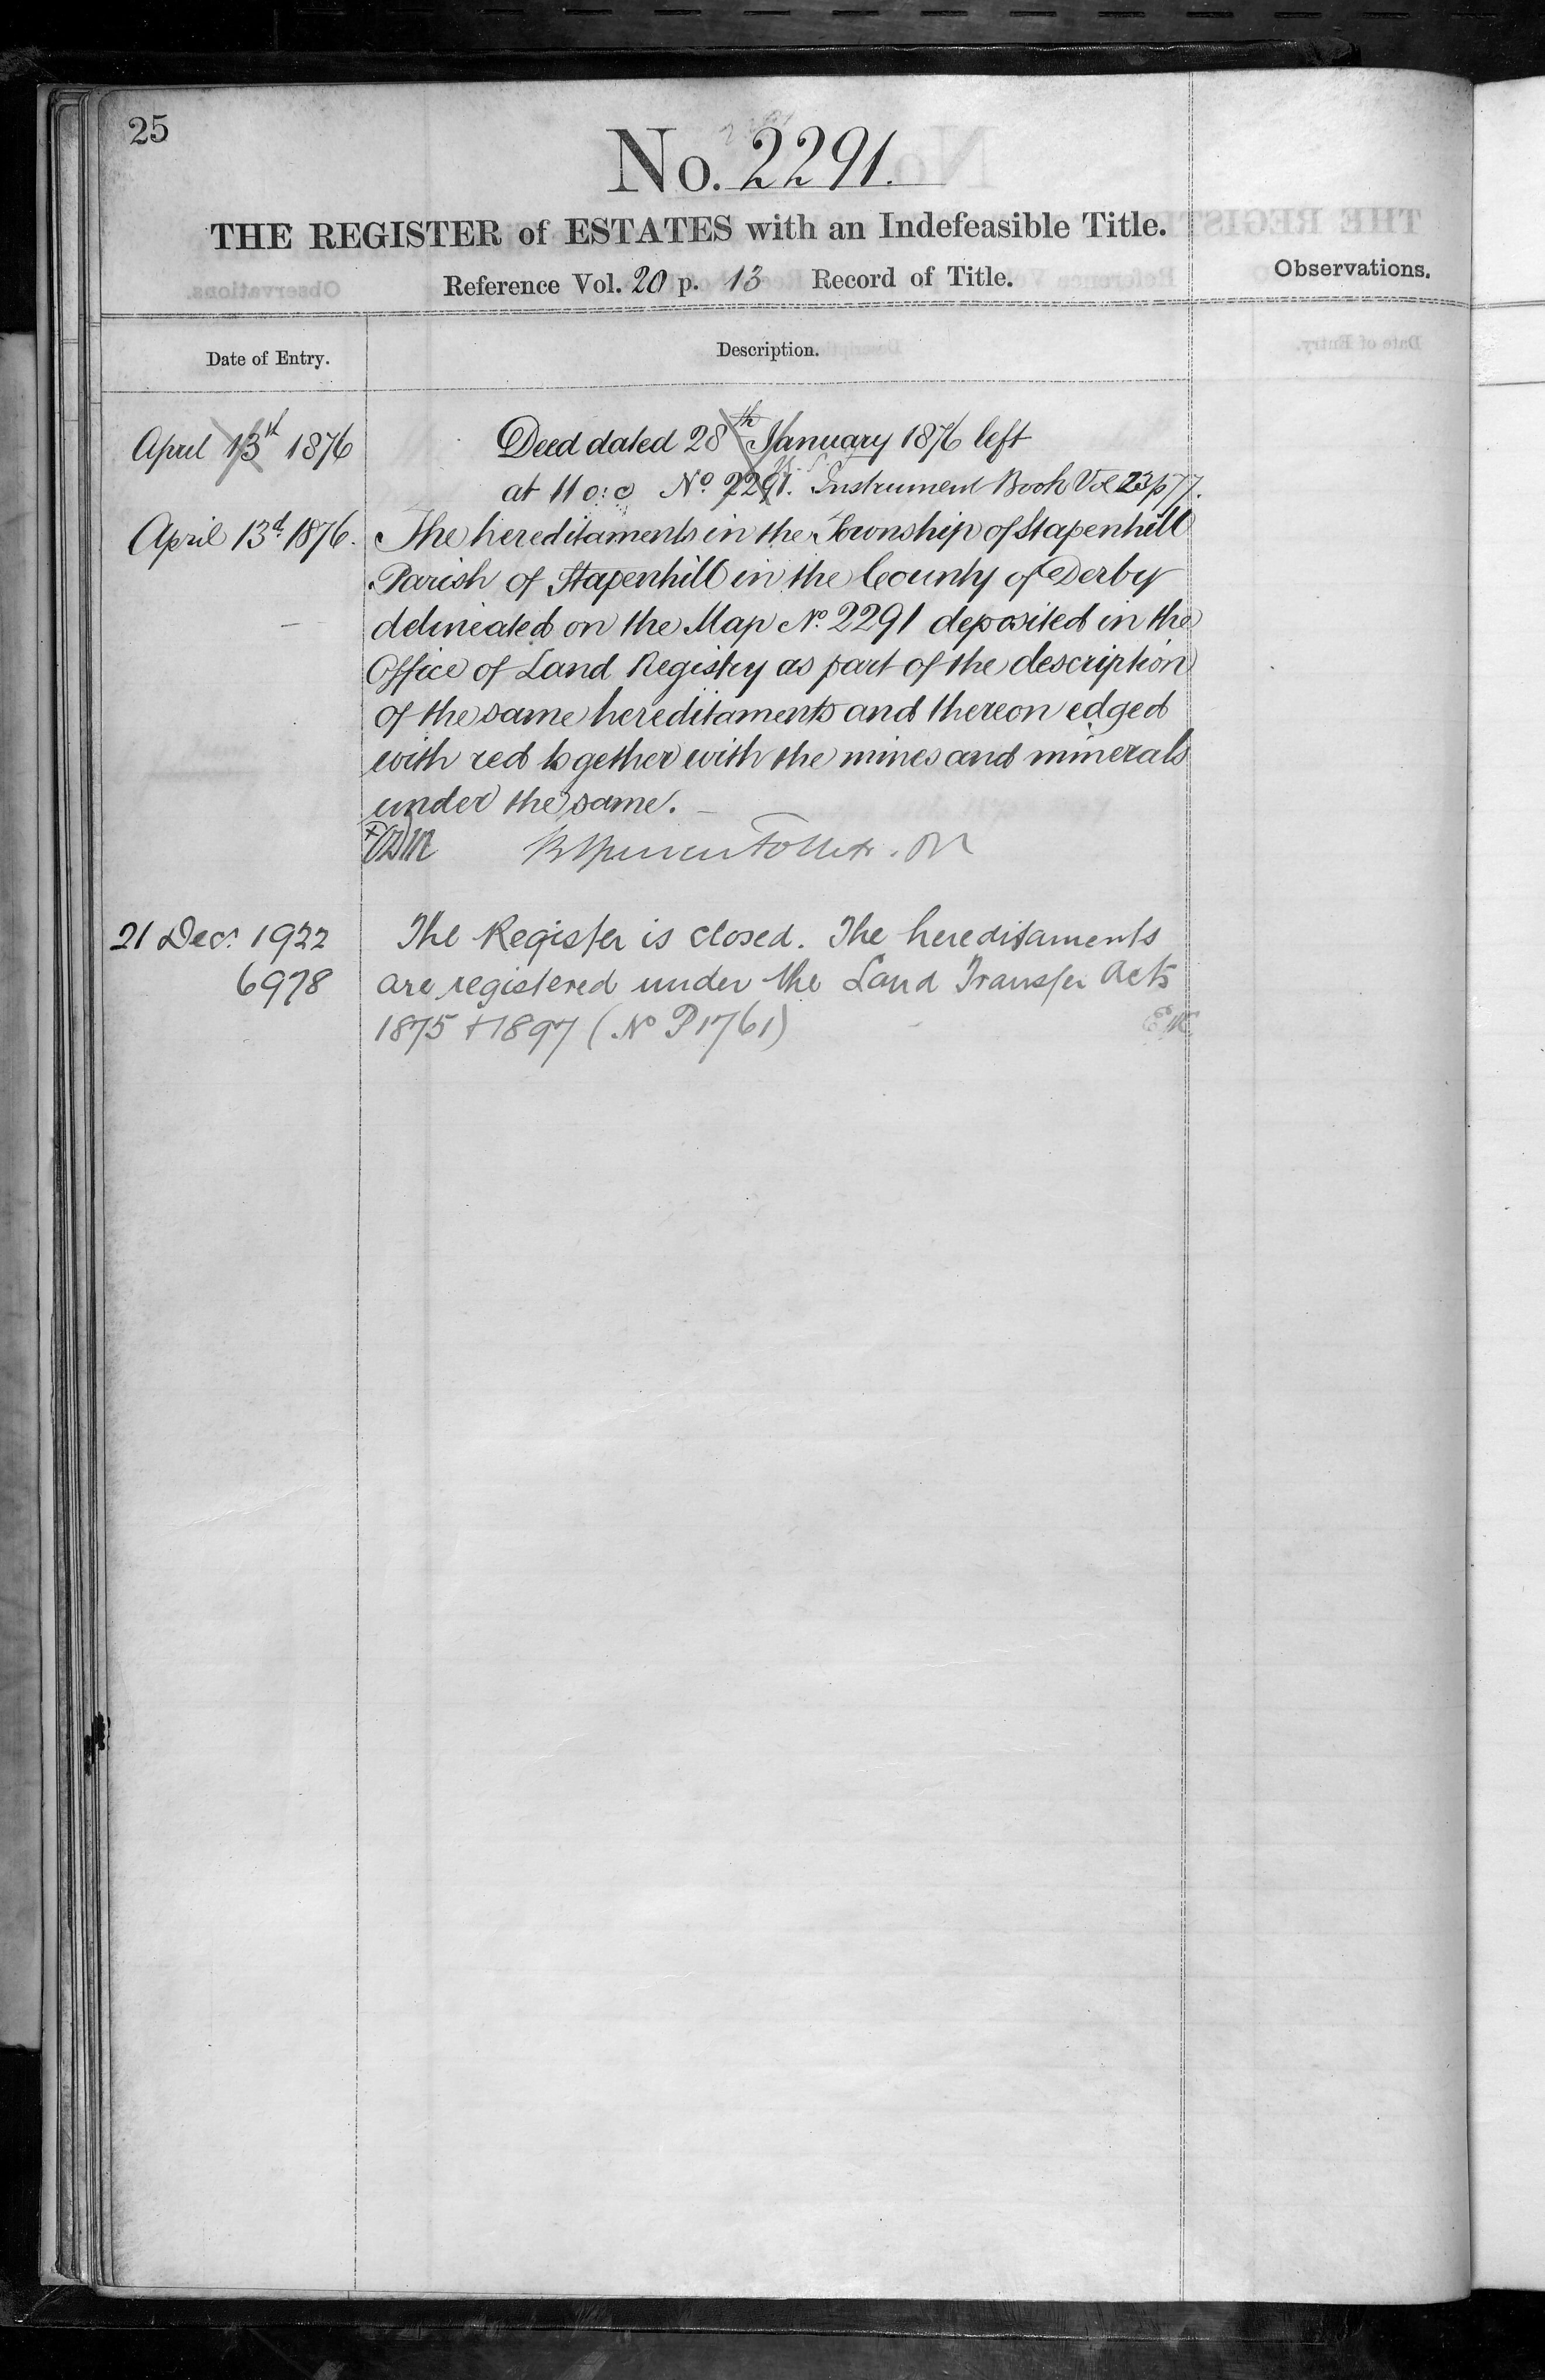 25
No. 2291.
THE REGISTER of ESTATES with an Indefeasible Title.
Reference Vol. 20 p. 13 Record of Title.
Observations.
Date of Entry.
Description.
April 13th 1876
Deed dated 28th January 1876 left
at 11 o:c No. 2291. Instrument Book Vol 23 p 77.
April 13th 1876.
The hereditaments in the Township of Stapenhill
Parish of Stapenhill in the County of Derby
delineated on the Map No. 2291 deposited in the
Office of Land Registry as part of the description
of the same hereditaments and thereon edged
with red together with the mines and minerals
under the same.
21 Decr 1922
6978
The Register is closed. The hereditaments
are registered under the Land Transfer Acts
1875 + 1897 (No P1761)